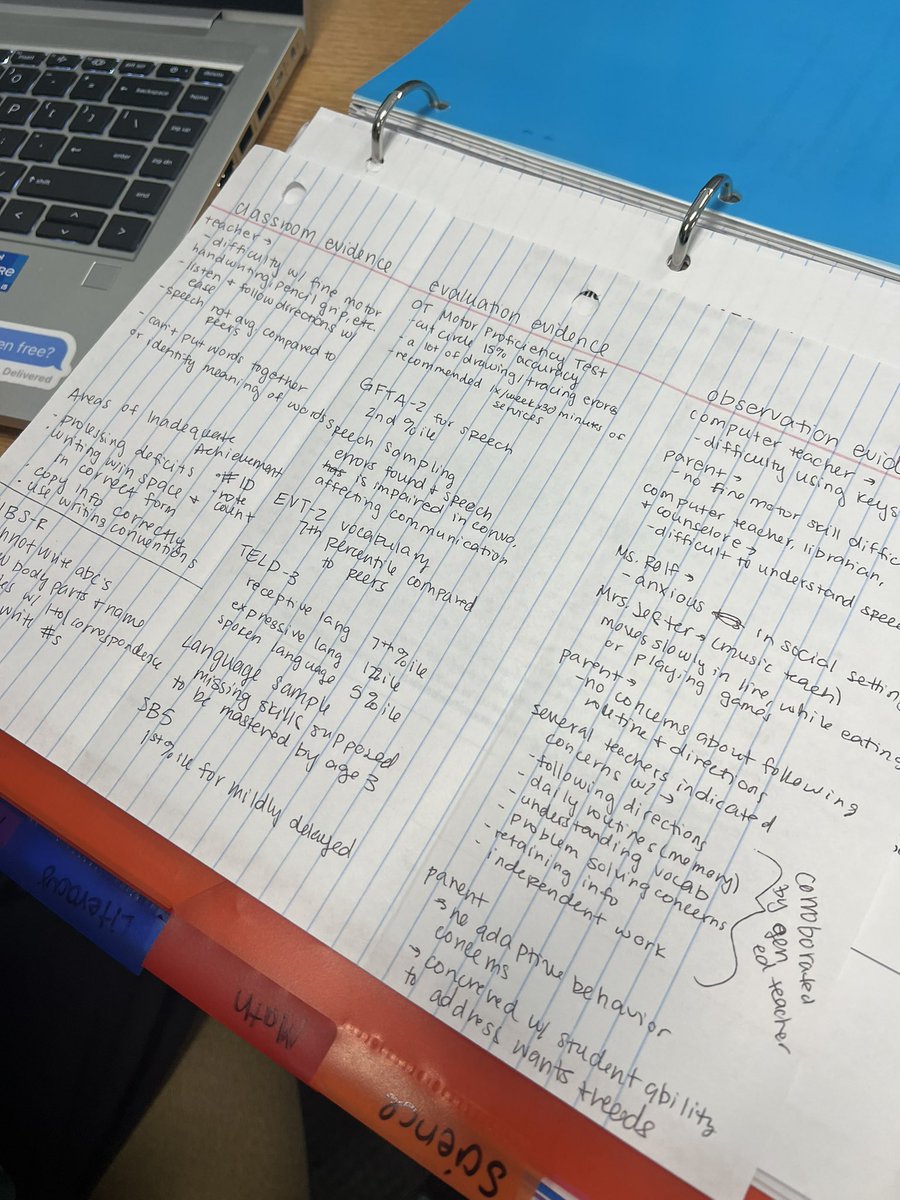 classroom evidence
teacher →
- difficulty w/ fine motor
handwriting, pencil grip, etc.
- listen + follow directions w/
ease
- speech not avg. compared to
peers
- can't put words together
or identify meaning of words
Areas of Inadequate
Achievement
- processing deficits
· # ID
· rote
count
· writing w/in space +
in correct form
· copy info correctly
· use writing conventions
IBS-R
nnot write abc's
body parts + name
w/ 1to1 correspondence
write #s
evaluation evidence
OT Motor Proficiency Test
- cut circle 15% accuracy
- a lot of drawing/tracing errors
- recommended 1x/week x 30 minutes of
services
GFTA-2 for speech
2nd %ile
speech sampling
errors found + speech
is impaired in convo,
affecting communication
EVT-2 vocabulary
7th percentile compared
to peers
TELD-3
receptive lang 7th %ile
expressive lang 1%ile
spoken language 5%ile
Language sample
missing skills supposed
to be mastered by age 3
SBS
1st %ile for mildly delayed
observation evid
computer teacher →
- difficulty using keys
parent →
- no fine motor skill diffic
computer teacher, librarian,
+ counselor →
- difficult to understand speec
Ms. Rolf →
- anxious in social setting
Mrs. Jeter → (music teach)
moves slowly in line, while eating
or playing games
parent →
- no concerns about following
routine + directions
several teachers indicated
concerns w/ →
- following directions
- daily routines (memory)
- understanding vocab
- problem solving concerns
- retaining info
- independent work
corroborated
by gen
ed teacher
parent
→ no adaptive behavior
concerns
→ concrered w/ student ability
to address wants + needs
Literacy
Math
Science
insert
delete
backspace
home
pg up
enter
pg dn
shift
end
en free?
Delivered